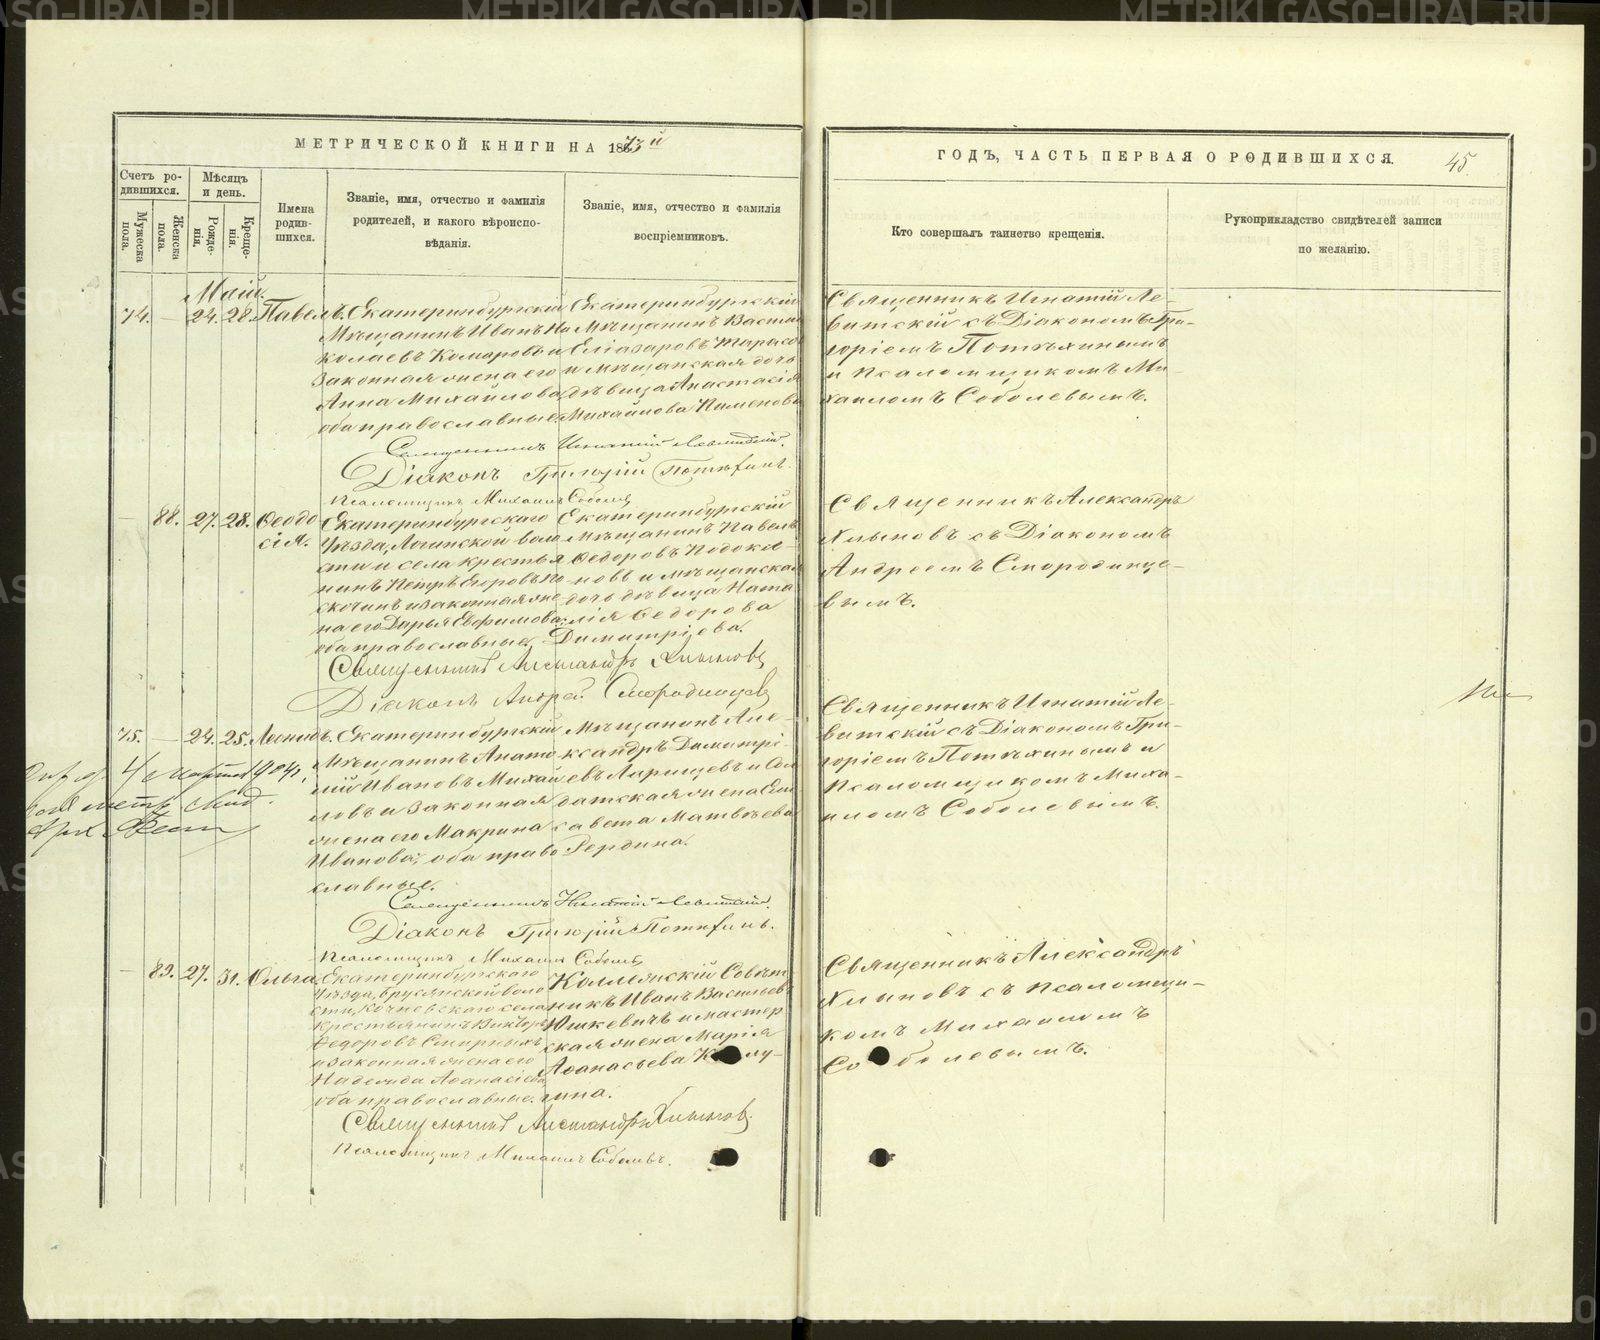 МЕТРИЧЕСКОЙ КНИГИ НА 1873й
ГОДЪ, ЧАСТЬ ПЕРВАЯ О РОДИВШИХСЯ.
45.
Счетъ ро-
дившихся.
Мужеска
пола.
Женска
пола.
Мѣсяцъ
и день.
Рожде-
нія.
Креще-
нія.
Имена
родив-
шихся.
Званіе, имя, отчество и фамилія
родителей, и какого вѣроиспо-
вѣданія.
Званіе, имя, отчество и фамилія
воспріемниковъ.
Кто совершалъ таинство крещенія.
Рукоприкладство свидѣтелей записи
по желанію.
Май.
74. — 24. 28. Павелъ.
Екатеринбургскій
Мѣщанинъ Иванъ Ни
колаевъ Комаровъ и
законная жена его
Анна Михайлова,
оба православные.
Екатеринбургскій
Мѣщанинъ Васил
Еліазаровъ Тарасо
и мѣщанская дочь
дѣвица Анастасія
Михайлова Пименова
Священникъ Игнатій Ле-
витскій съ Діакономъ Гри-
горіемъ Потѣхинымъ
и Псаломщикомъ Ми-
хаиломъ Соболевымъ.
Священникъ Игнатій Левитскій.
Діаконъ Григорій Потѣхинъ.
Псаломщикъ Михаилъ Соболевъ
— 88. 27. 28. Ѳеодо
сія.
Екатеринбургскаго
Уѣзда, Логинской воло
сти и села крестья
нинъ Петръ Егоровъ По
скочинъ и законная же
на его Дарья Евфимова,
оба православные.
Екатеринбургскій
Мѣщанинъ Павелъ
Ѳедоровъ Подокся-
новъ и мѣщанская
дочь дѣвица Ната
лія Ѳедорова
Димитріева.
Священникъ Александръ
Хлыновъ съ Діакономъ
Андреемъ Смородинце-
вымъ.
Священникъ Александръ Хлыновъ
Діаконъ Андрей Смородинцевъ
75. — 24. 25. Леонидъ.
Екатеринбургскій
Мѣщанинъ Анато
лій Ивановъ Михай
ловъ и законная
жена его Макрина
Иванова, оба право
славные.
Мѣщанинъ Але-
ксандръ Димитрі-
евъ Ларищевъ и Сол
датская жена Ели
савета Матвѣева
Рердина.
Священникъ Игнатій Ле-
витскій съ Діакономъ Гри-
горіемъ Потѣхинымъ и
Псаломщикомъ Миха-
иломъ Соболевымъ.
4 марта 1904
метр. свид.
Священникъ Игнатій Левитскій.
Діаконъ Григорій Потѣхинъ.
Псаломщикъ Михаилъ Соболевъ
— 89. 27. 31. Ольга.
Екатеринбургскаго
Уѣзда, Брусянской воло
сти, Кочневскаго села
крестьянинъ Викторъ
Ѳедоровъ Смирныхъ
и законная жена его
Надежда Аѳанасіева,
оба православные.
Коллежскій Совѣт
никъ Иванъ Васильевъ
Юшкевичъ и мастер
ская жена Марія
Аѳанасьева
гина.
Священникъ Александръ
Хлыновъ съ Псаломщи-
комъ Михаиломъ
Соболевымъ.
Священникъ Александръ Хлыновъ.
Псаломщикъ Михаилъ Соболевъ.
METRIKI.GASO-URAL.RU